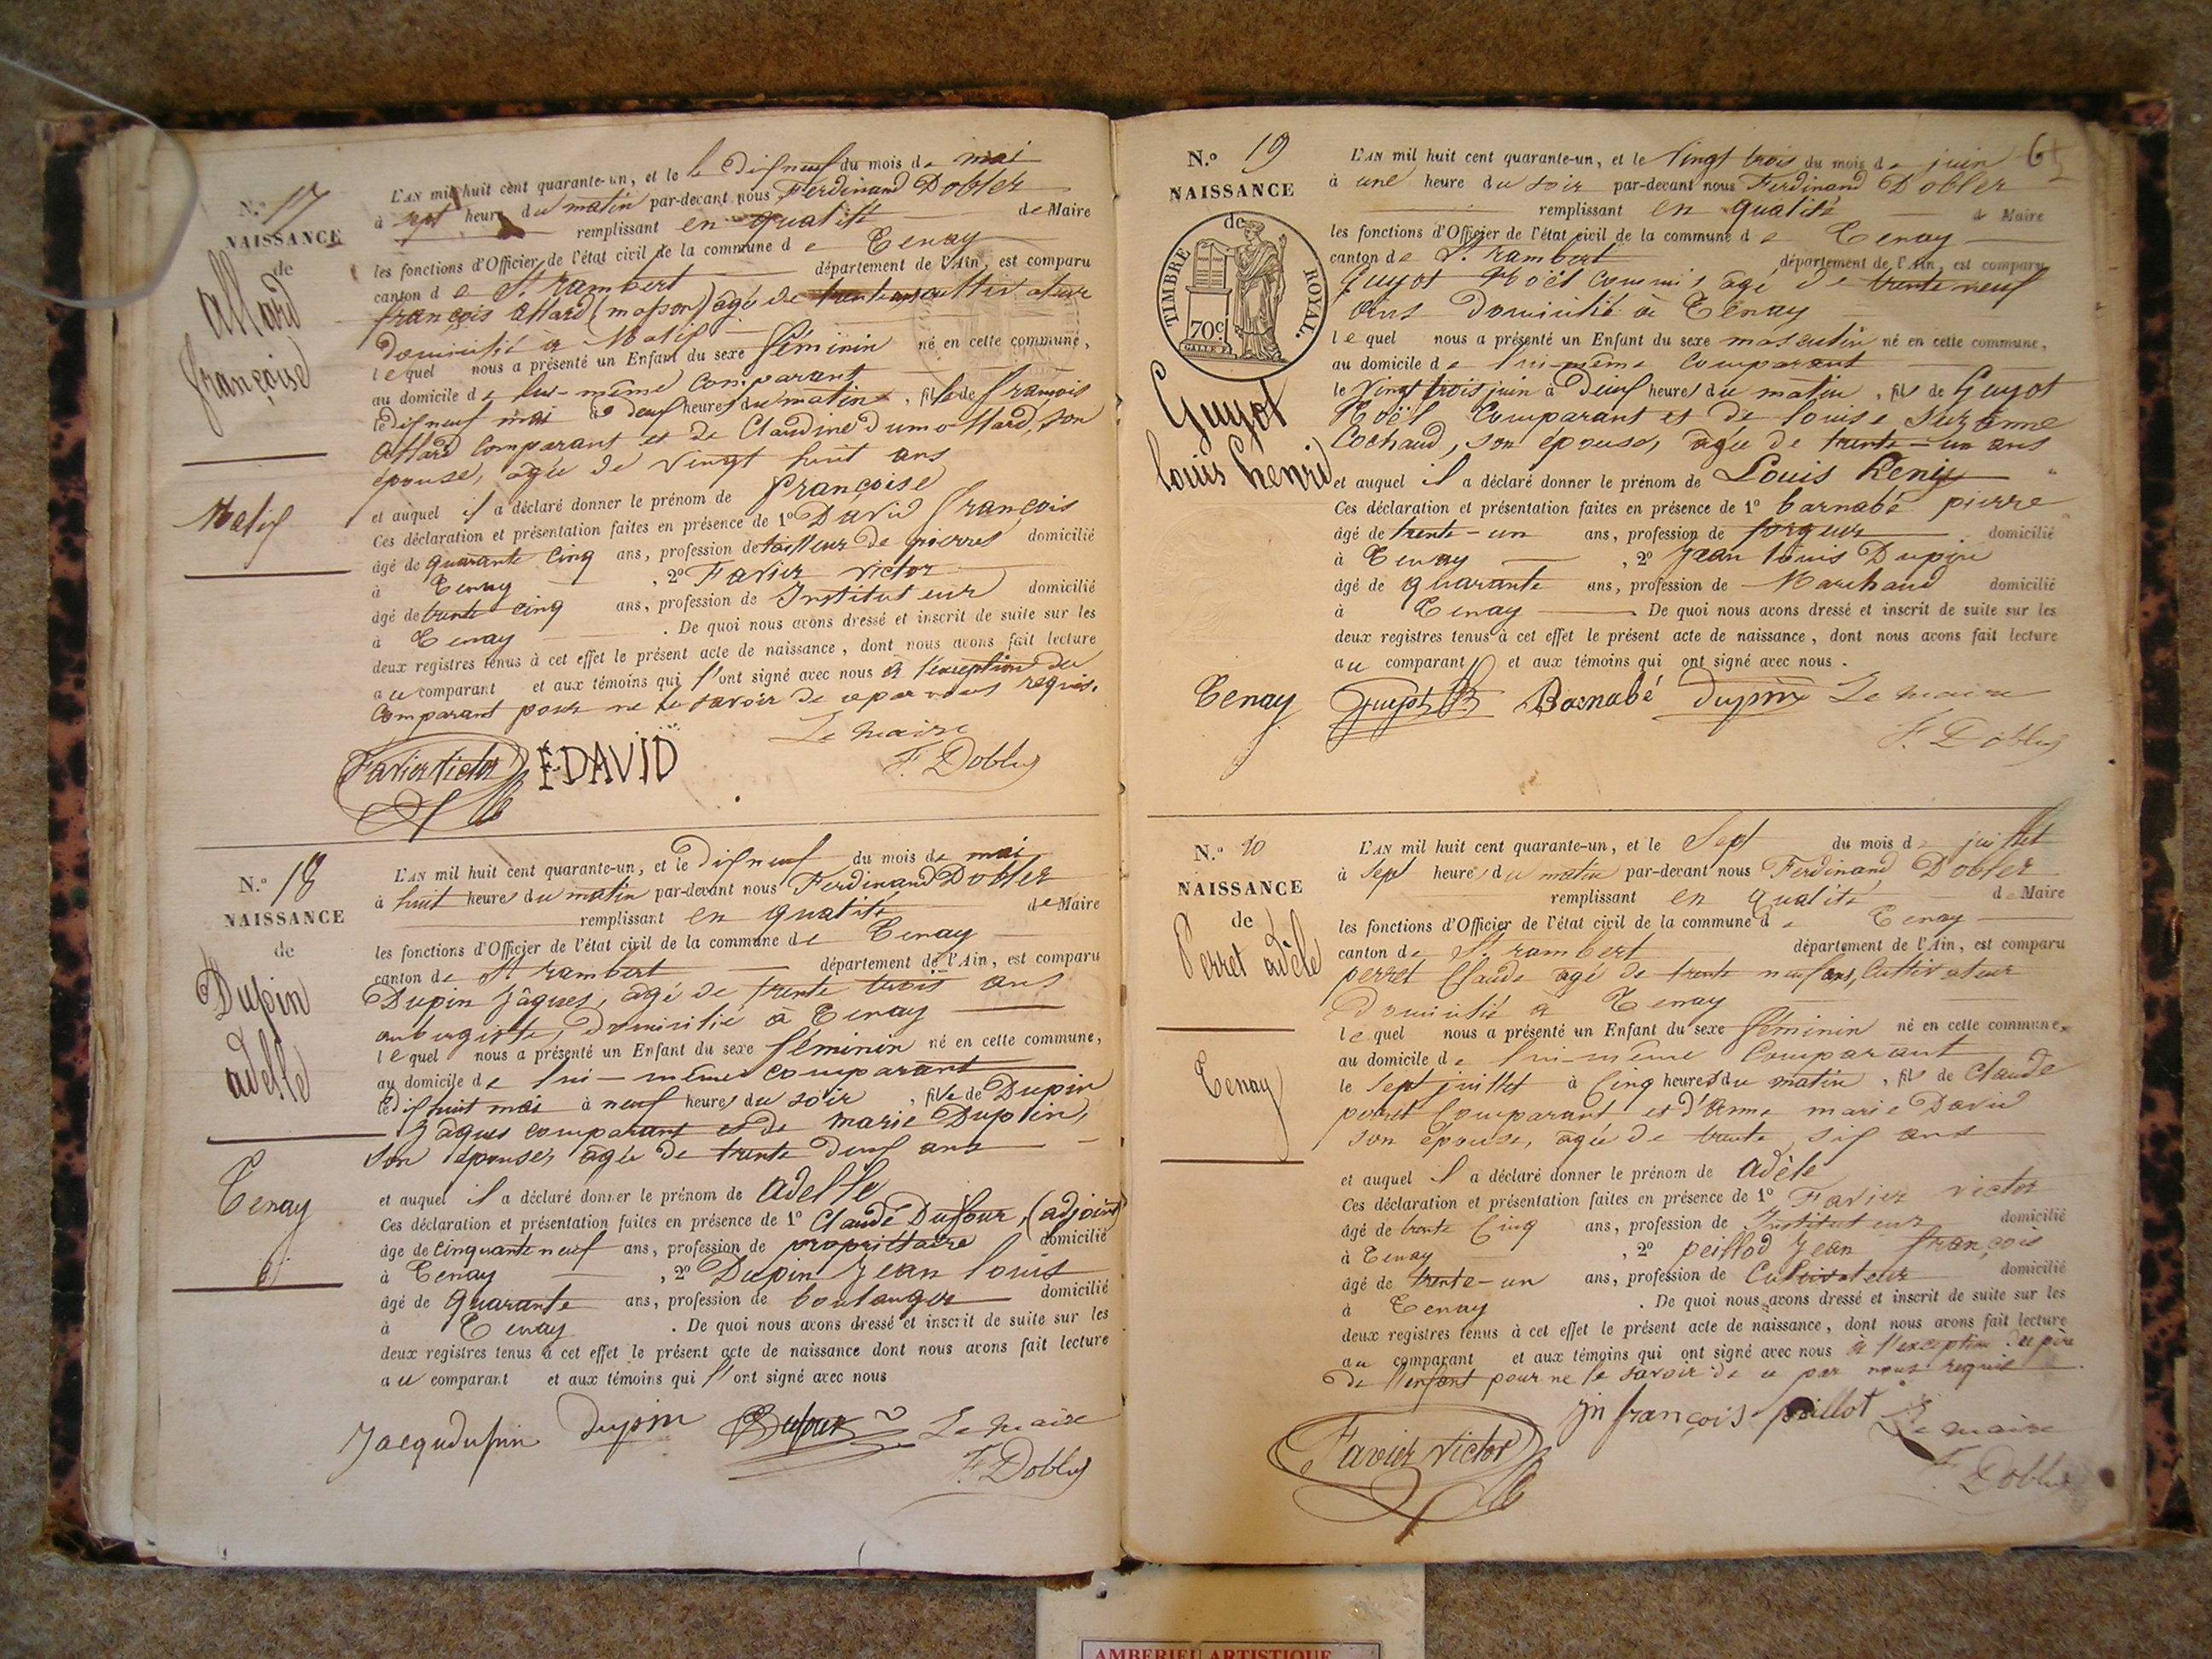 N.° 17
NAISSANCE
de
Allard
françoise
Malix
L'AN mil huit cent quarante-un, et le le dix neuf du mois de mai
à sept heures du matin par-devant nous Ferdinand Dobler
remplissant en qualité de Maire
les fonctions d'Officier de l'état civil de la commune de Tenay
canton de St rambert département de l'Ain, est comparu
françois Allard (maçon) agé de cultivateur
domicilié à Malix
lequel nous a présenté un Enfant du sexe féminin né en cette commune,
au domicile de lui-même comparant
le dix neuf mai à deux heures du matin, fille de françois
Allard comparant et de Claudine dumollard, son
épouse, agée de vingt huit ans
et auquel il a déclaré donner le prénom de françoise
Ces déclaration et présentation faites en présence de 1° David françois
âgé de quarante cinq ans, profession de tailleur de pierres domicilié
à Tenay, 2° Favier victor
âgé de trente cinq ans, profession de Instituteur domicilié
à Tenay. De quoi nous avons dressé et inscrit de suite sur les
deux registres tenus à cet effet le présent acte de naissance, dont nous avons fait lecture
au comparant et aux témoins qui l'ont signé avec nous à l'exception du
Comparant pour ne le savoir de ce par nous requis.
Le maire
Favier Victor F. DAVID F. Dobler
N.° 18
NAISSANCE
de
Dupin
adelle
Tenay
L'AN mil huit cent quarante-un, et le dix neuf du mois de mai
à huit heures du matin par-devant nous Ferdinand Dobler
remplissant en qualité de Maire
les fonctions d'Officier de l'état civil de la commune de Tenay
canton de St rambert département de l'Ain, est comparu
Dupin Jâques, agé de trente trois ans
aubergiste, domicilié à Tenay
lequel nous a présenté un Enfant du sexe féminin né en cette commune,
au domicile de lui-même comparant
le dix huit mai à neuf heures du soir, fille de Dupin
Jâques comparant et de marie Duplin,
son épouse, agée de trente deux ans
et auquel il a déclaré donner le prénom de adelle
Ces déclaration et présentation faites en présence de 1° Claude Dufour, (adjoint)
âgé de cinquante neuf ans, profession de propriétaire domicilié
à Tenay, 2° Dupin Jean louis
âgé de quarante ans, profession de boulanger domicilié
à Tenay. De quoi nous avons dressé et inscrit de suite sur les
deux registres tenus à cet effet le présent acte de naissance dont nous avons fait lecture
au comparant et aux témoins qui l'ont signé avec nous
Jacqudupin Dupin Dufour Le maire
F. Dobler
65
N.° 19
NAISSANCE
de
TIMBRE ROYAL.
70c
Guyot
louis henri
Tenay
L'AN mil huit cent quarante-un, et le vingt trois du mois de juin
à une heure du soir par-devant nous Ferdinand Dobler
remplissant en qualité de Maire
les fonctions d'Officier de l'état civil de la commune de Tenay
canton de St. rambert département de l'Ain, est comparu
Guyot Noël commis, agé de trente neuf
ans domicilié à Tenay
lequel nous a présenté un Enfant du sexe masculin né en cette commune,
au domicile de lui-même comparant
le vingt trois juin à deux heures du matin, fils de Guyot
Noël comparant et de louise Suzanne
Cochaud, son épouse, agée de trente-un ans
et auquel il a déclaré donner le prénom de Louis henry
Ces déclaration et présentation faites en présence de 1° barnabé pierre
âgé de trente-un ans, profession de forgeur domicilié
à Tenay, 2° Jean louis Dupin
âgé de quarante ans, profession de Marchand domicilié
à Tenay De quoi nous avons dressé et inscrit de suite sur les
deux registres tenus à cet effet le présent acte de naissance, dont nous avons fait lecture
au comparant et aux témoins qui ont signé avec nous.
Guyot Barnabé dupin Le maire
F. Dobler
N.° 20
NAISSANCE
de
Perret adèle
Tenay
L'AN mil huit cent quarante-un, et le sept du mois de juillet
à sept heures du matin par-devant nous Ferdinand Dobler
remplissant en qualité de Maire
les fonctions d'Officier de l'état civil de la commune de Tenay
canton de St. rambert département de l'Ain, est comparu
perret Claude agé de trente neuf ans, Cultivateur
domicilié à Tenay
lequel nous a présenté un Enfant du sexe féminin né en cette commune,
au domicile de lui-même comparant
le sept juillet à cinq heures du matin, fils de Claude
perret Comparant et d'anne marie David
son épouse, agée de trente six ans
et auquel il a déclaré donner le prénom de adèle
Ces déclaration et présentation faites en présence de 1° Favier victor
âgé de trente cinq ans, profession de Instituteur domicilié
à Tenay, 2° peillod Jean françois
âgé de trente-un ans, profession de Cultivateur domicilié
à Tenay. De quoi nous avons dressé et inscrit de suite sur les
deux registres tenus à cet effet le présent acte de naissance, dont nous avons fait lecture
au comparant et aux témoins qui ont signé avec nous à l'exception du père
de l'enfant pour ne le savoir de ce par nous requis
Favier victor jn françois peillot Le maire
F. Dobler
AMBERIEU ARTISTIQUE